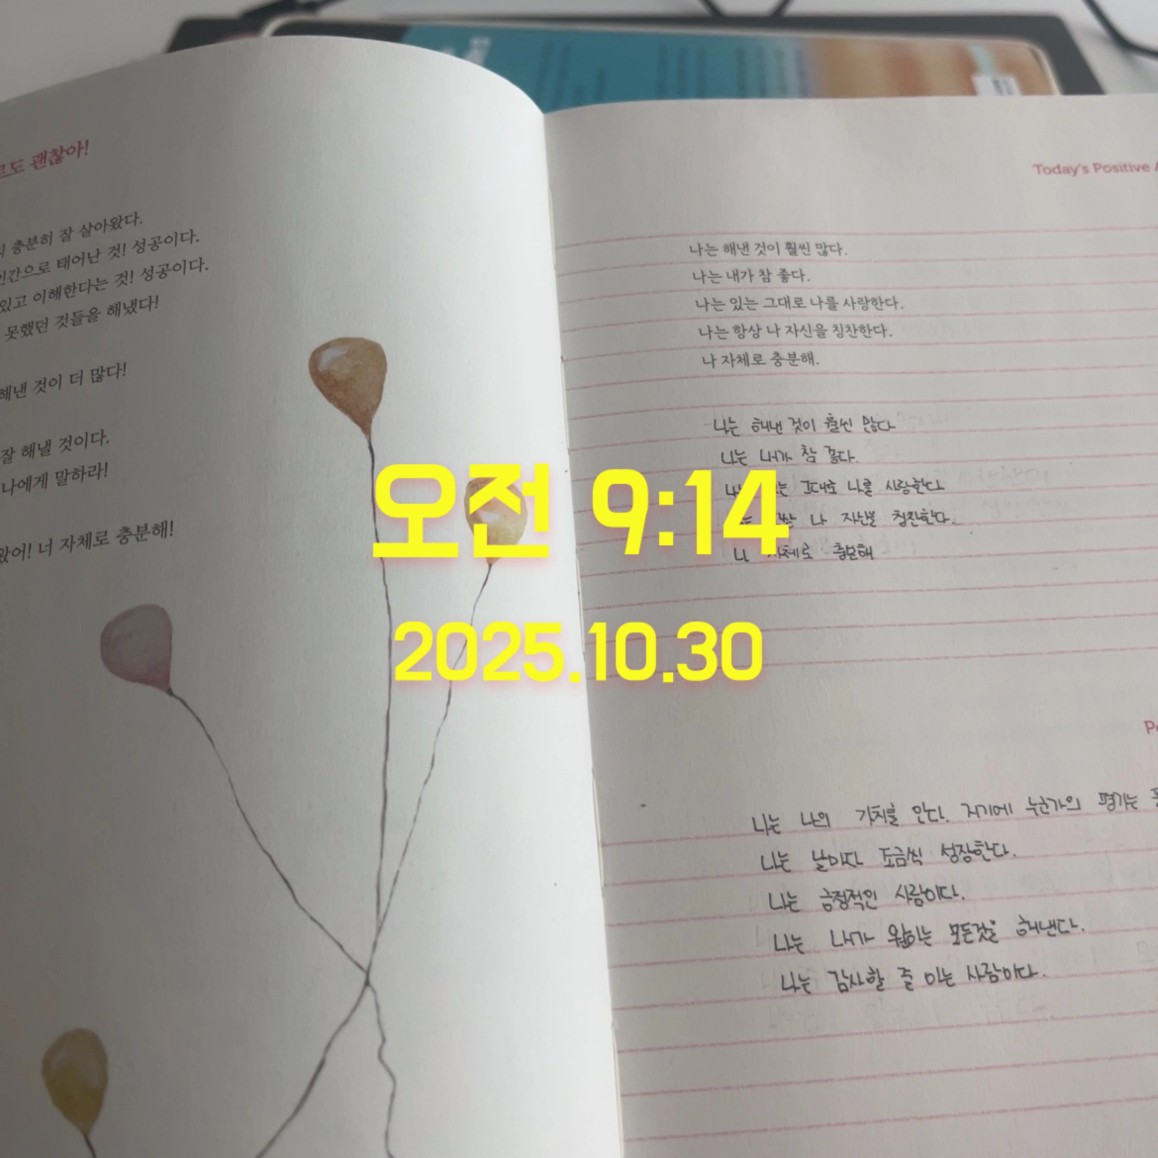 도 괜찮아!
충분히 잘 살아왔다.
인간으로 태어난 것! 성공이다.
있고 이해한다는 것! 성공이다.
못했던 것들을 해냈다!
해낸 것이 더 많다!
잘 해낼 것이다.
나에게 말하라!
왔어! 너 자체로 충분해!
Today's Positive
나는 해낸 것이 훨씬 많다.
나는 내가 참 좋다.
나는 있는 그대로 나를 사랑한다.
나는 항상 나 자신을 칭찬한다.
나 자체로 충분해.
나는 해낸 것이 훨씬 많다
나는 내가 참 좋다.
그대로 나를 사랑한다
나 자신을 칭찬한다.
나 자체로 충분해
오전 9:14
2025.10.30
나는 나의 가치를 안다. 저기에 누군가의 평가는
나는 날마다 조금씩 성장한다.
나는 긍정적인 사람이다.
나는 내가 원하는 모든것을 해낸다.
나는 감사할 줄 아는 사람이다.